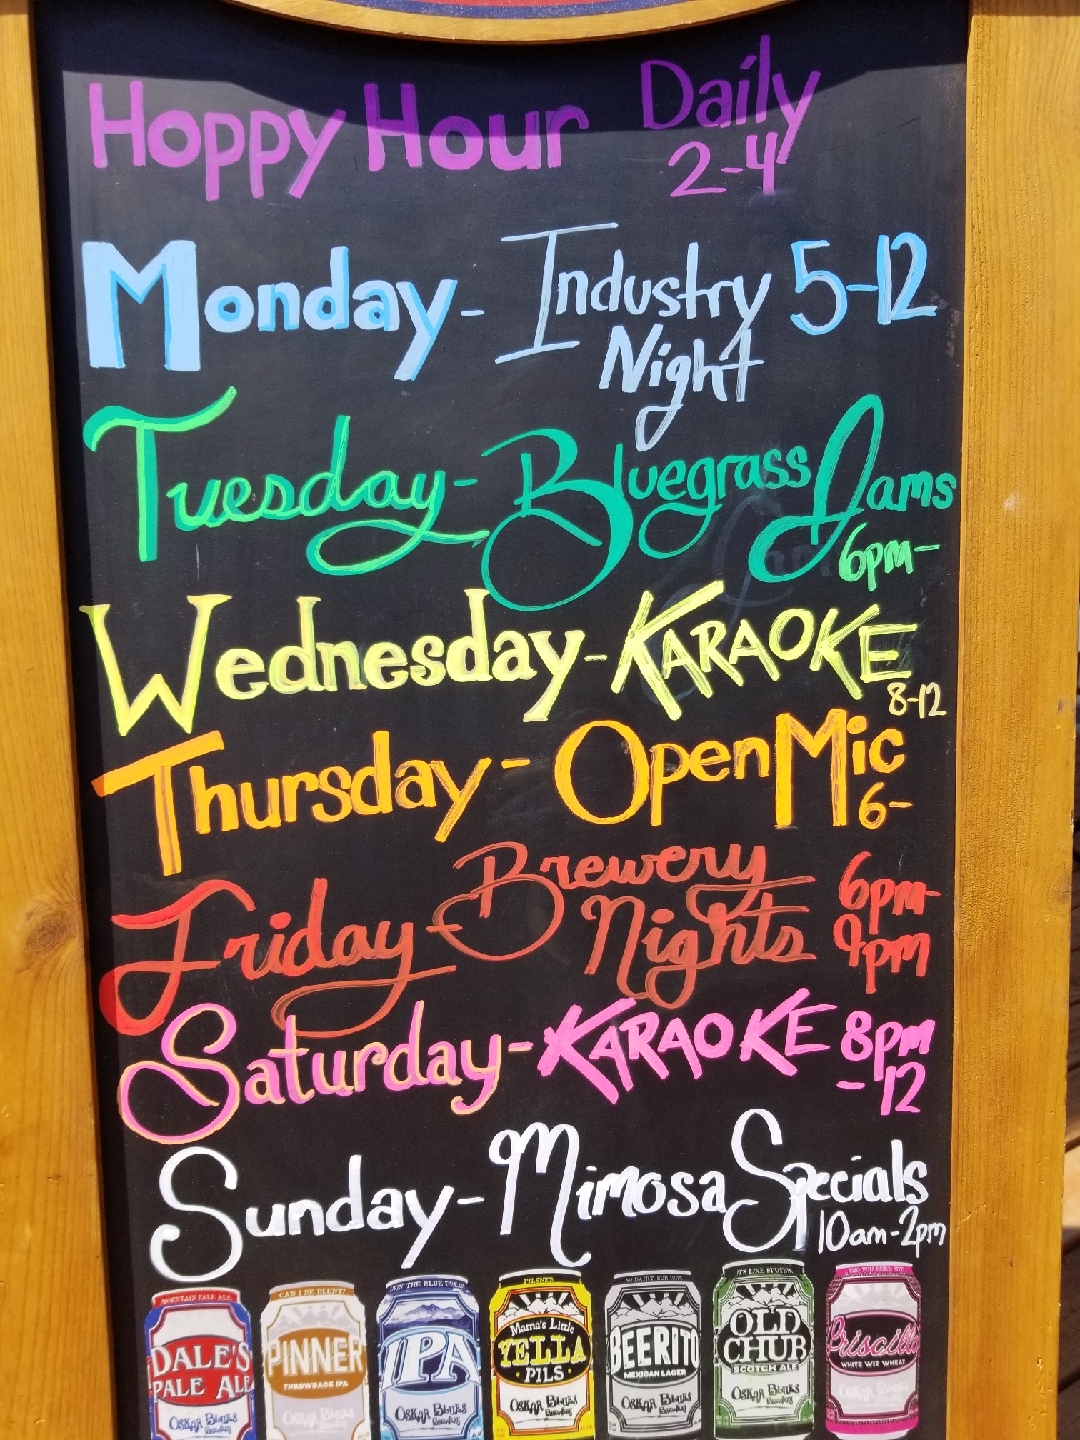 Hoppy Hour Daily
2-4
Monday - Industry 5-12
Night
Tuesday - Bluegrass Jams
6pm-
Wednesday - KARAOKE
8-12
Thursday - Open Mic
6-
Friday - Brewery Nights 6pm-
9pm
Saturday - KARAOKE 8pm
-12
Sunday - Mimosa Specials
10am-2pm
MOUNTAIN PALE ALE.
DALE'S
PALE ALE
OSKAR BLUES
CAN I BE BLUNT?
PINNER
THROWBACK IPA
IPA
OSKAR BLUES
PILSNER
Mama's Little
YELLA
PILS
OSKAR BLUES
BEERITO
MEXICAN LAGER
OSKAR BLUES
OLD
CHUB
SCOTCH ALE
OSKAR BLUES
Priscilla
WHITE WIT WHEAT